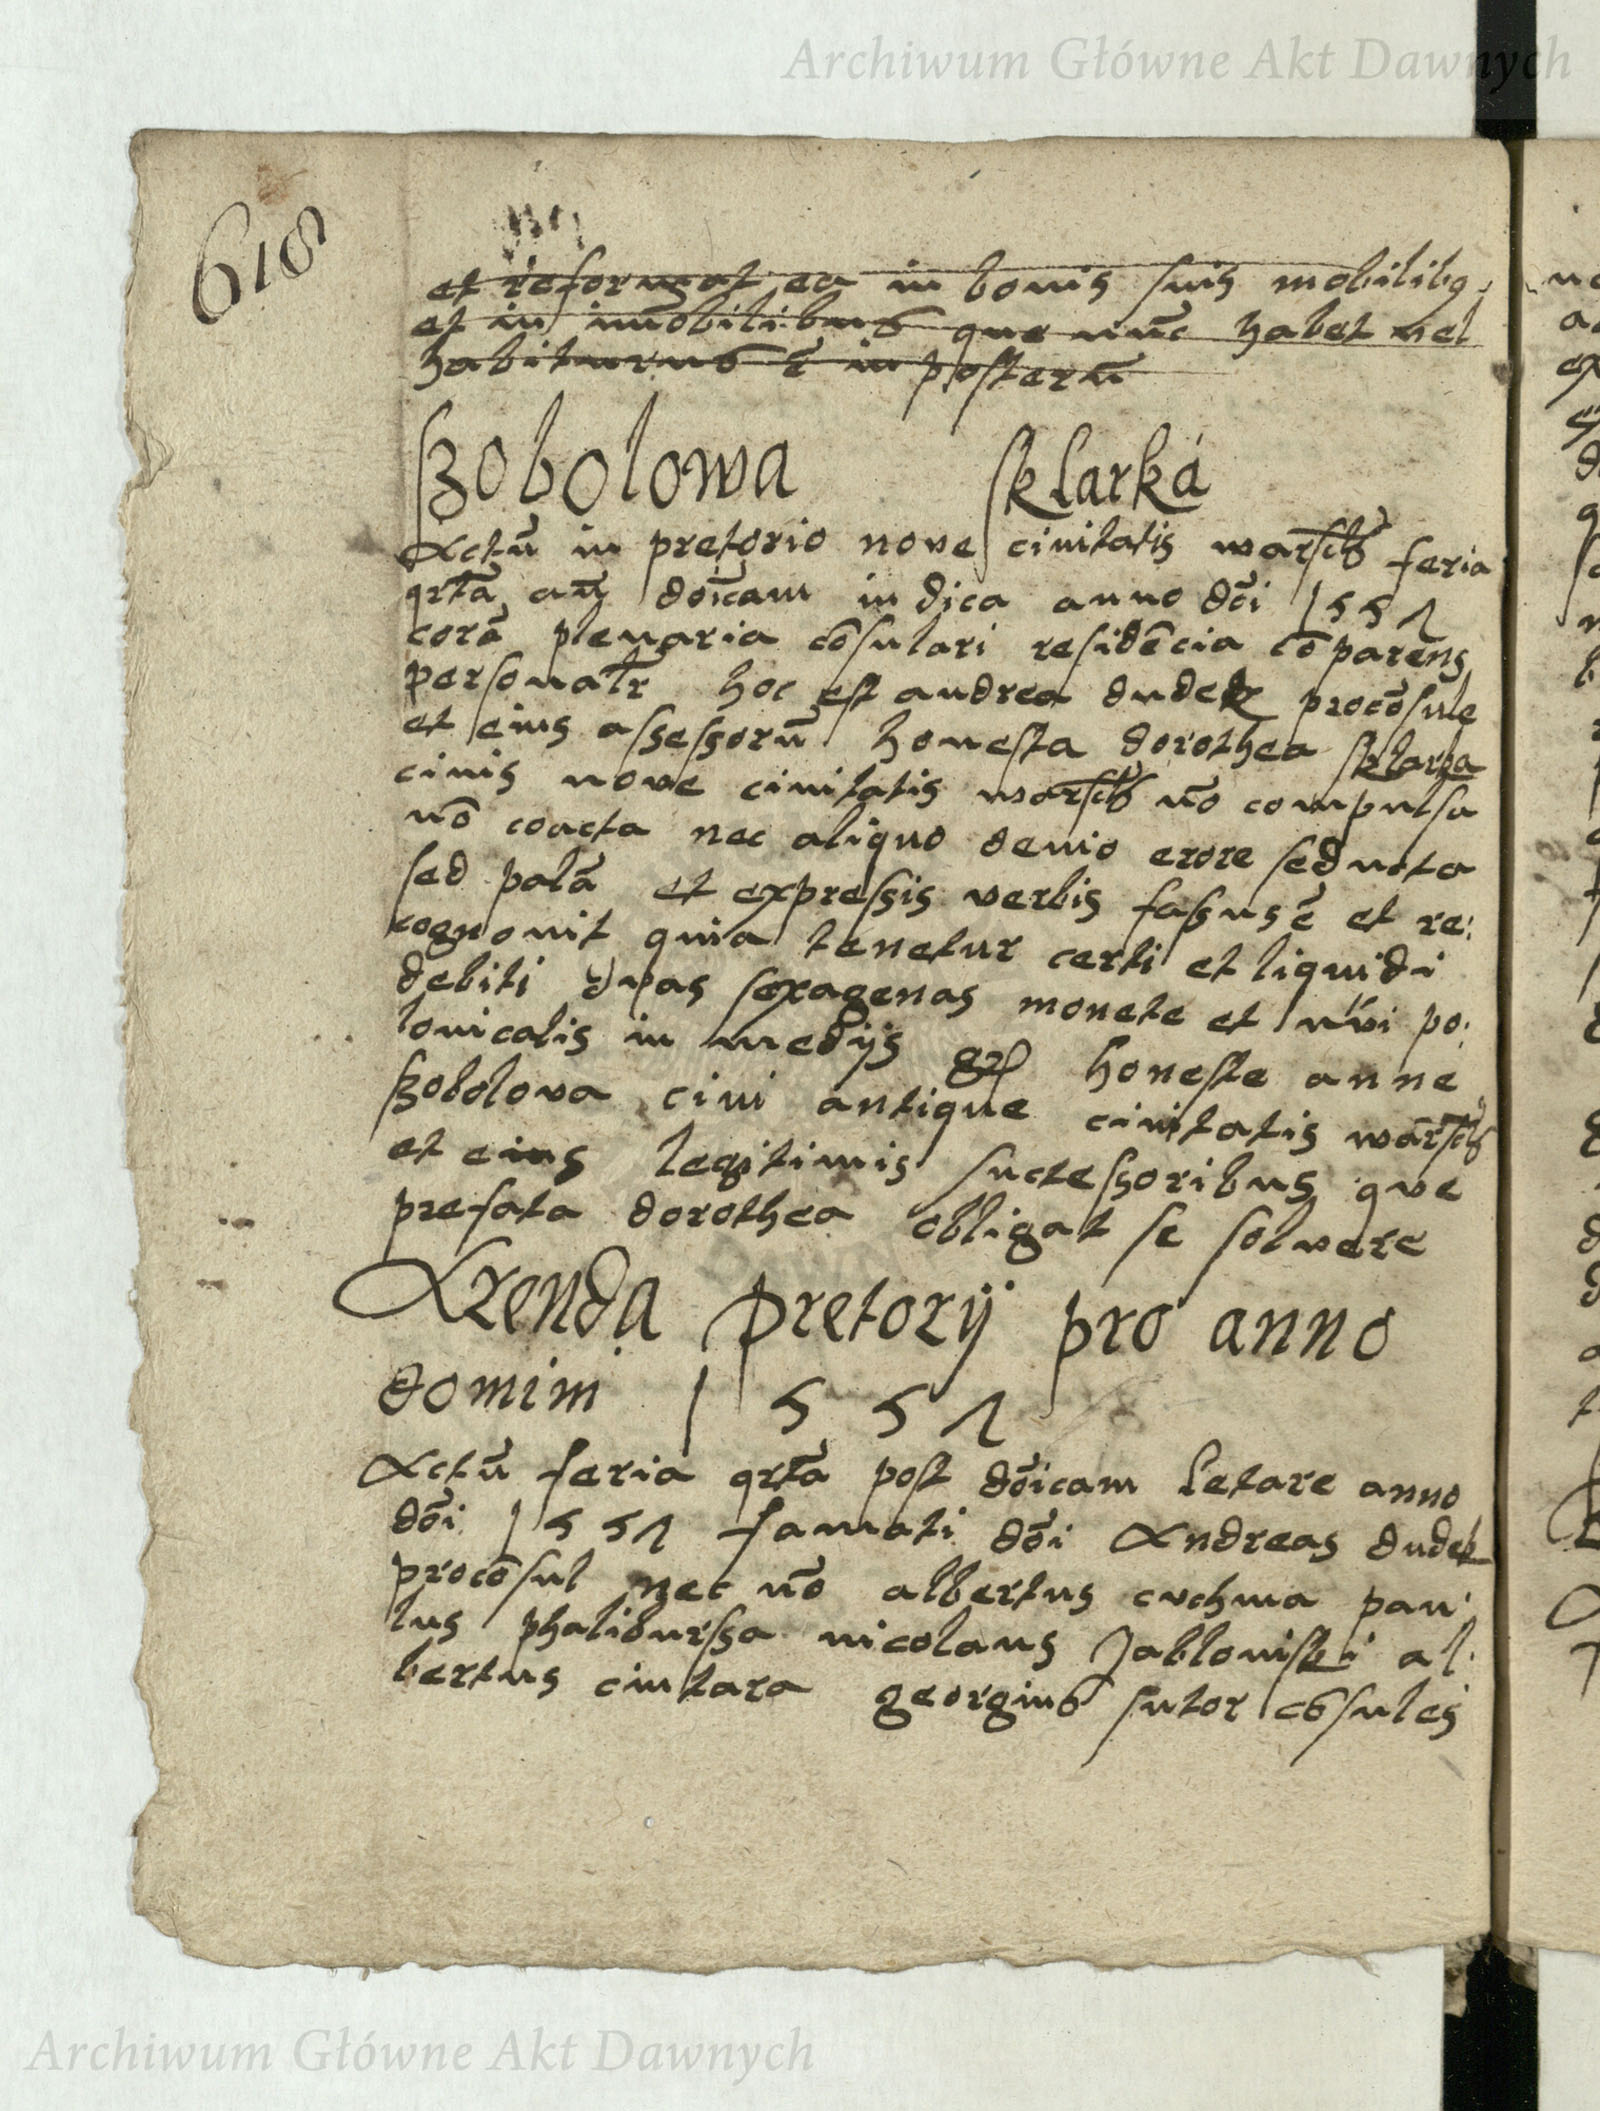 Archiwum Główne Akt Dawnych
618
et reformat ea in bonis suis mobilibq
et in im̄obilibus que nu͞c habet vel
habiturus e͞ in posteru͞
Szobolowa Sklarká
Actu͞ in pretorio nove civitatis warsch feria
qrta͞ an͞ do͞icam in dica anno do͞i 1557
cora͞ plenaria co͞sulari reside͞cia co͞parens
personalr hoc est andrea dudek proco͞sule
et eius assessoru͞ honesta dorothea sklarka
civis nove civitatis warsch no͞ compulsa
no͞ coacta nec aliquo devio erore seducta
sed pala͞ et expressis verbis fassus e͞ et re:
cognovit quia tenetur certi et liquidi
debiti duas sexagenas monete et nu͞i po:
lonicalis in medijs gr honeste anne
Szobolova civi antique civitatis warsch
et eius legitimis successoribus que
prefata dorothea obligat se solvere
Arenda pretorij pro anno
domini 1557
Actu͞ feria qrta͞ post do͞icam letare anno
do͞i 1557 famati do͞i Andreas dudek
proco͞sul nec no͞ albertus cuchma pau:
lus phalibursa nicolaus Jablonski al:
bertus ciutara georgius sutor co͞sules
Archiwum Główne Akt Dawnych